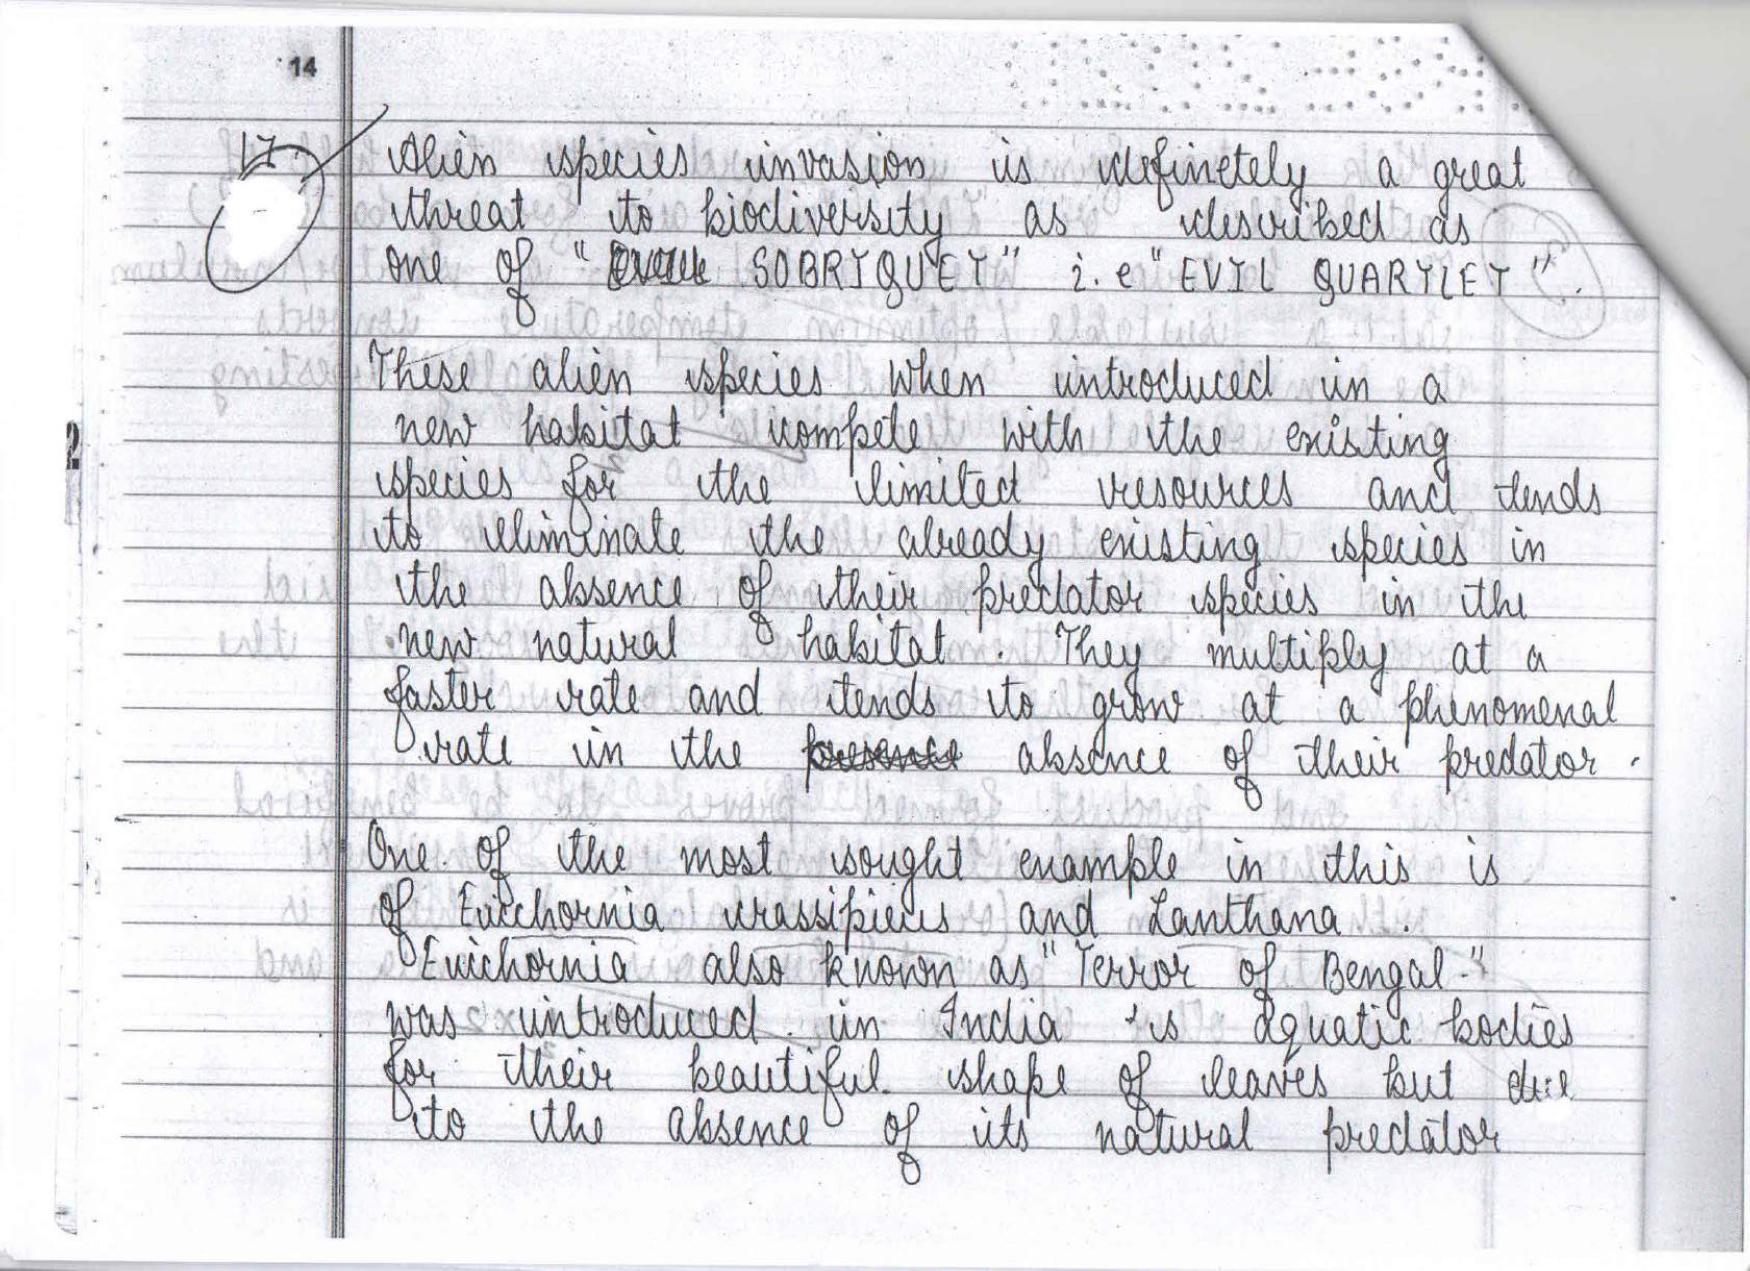 14
17. Alien species invasion is definetely a great
threat to biodiversity as described as
one of " SOBRIQUET" i.e "EVIL QUARTLET".
These alien species when introduced in a
new habitat compete with the existing
species for the limited resources and tends
to eliminate the already existing species in
the absence of their predator species in the
new natural habitat. They multiply at a
faster rate and tends to grow at a phenomenal
rate in the presence absence of their predator.
One of the most sought example in this is
of Eicchornia crassipieus and Lanthana.
Eicchornia also known as "Terror of Bengal"
was introduced in India is aquatic bodies
for their beautiful shape of leaves but due
to the absence of its natural predator
2